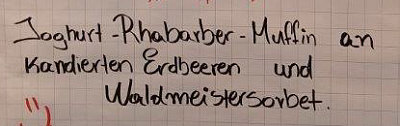 Joghurt-Rhabarber-Muffin an
kandierten Erdbeeren und
Waldmeistersorbet.